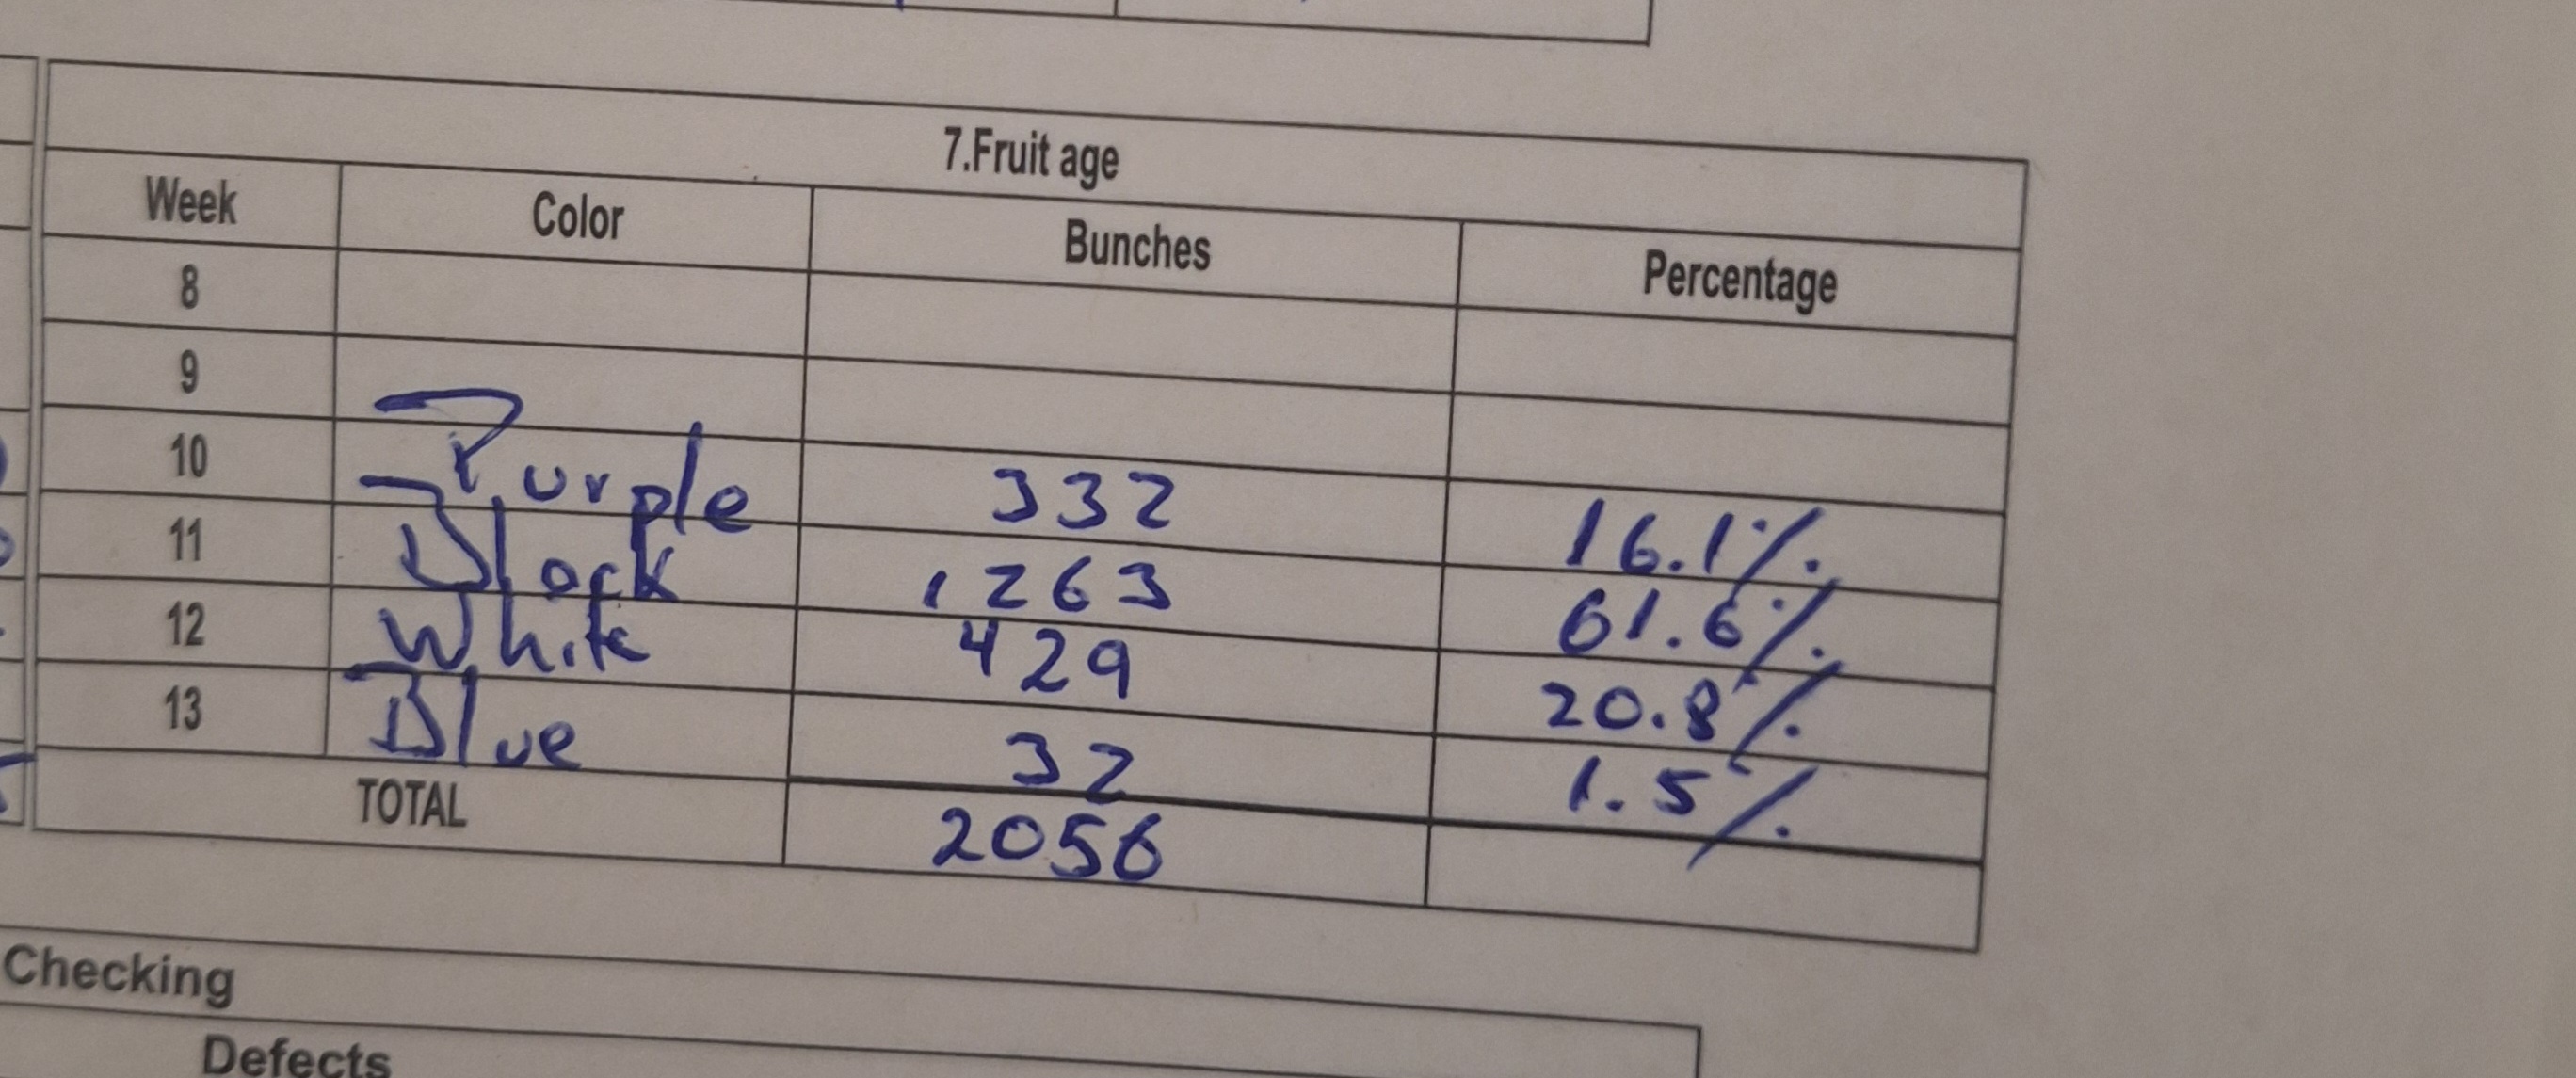 7.Fruit age
Week Color Bunches Percentage
8
9
10 Purple 332 16.1%
11 Black 1263 61.6%
12 White 429 20.8%
13 Blue 32 1.5%
TOTAL 2056
Checking
Defects